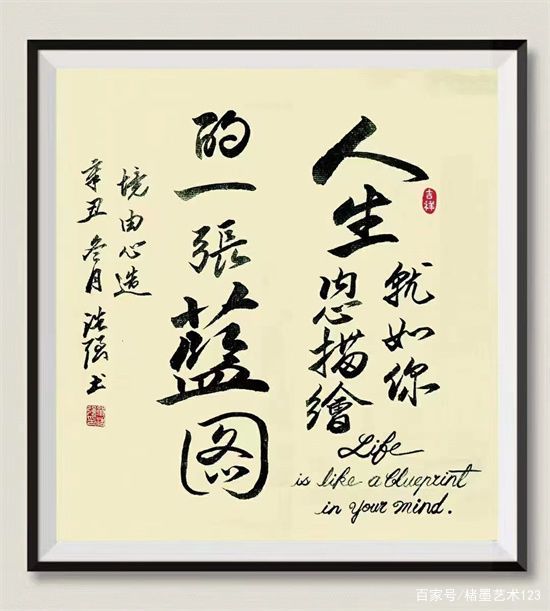 人生
就如你
内心描繪
吉祥
的一張藍图
境由心造
辛丑冬月 书
Life
is like a blueprint
in your mind.
百家号/楮墨艺术123